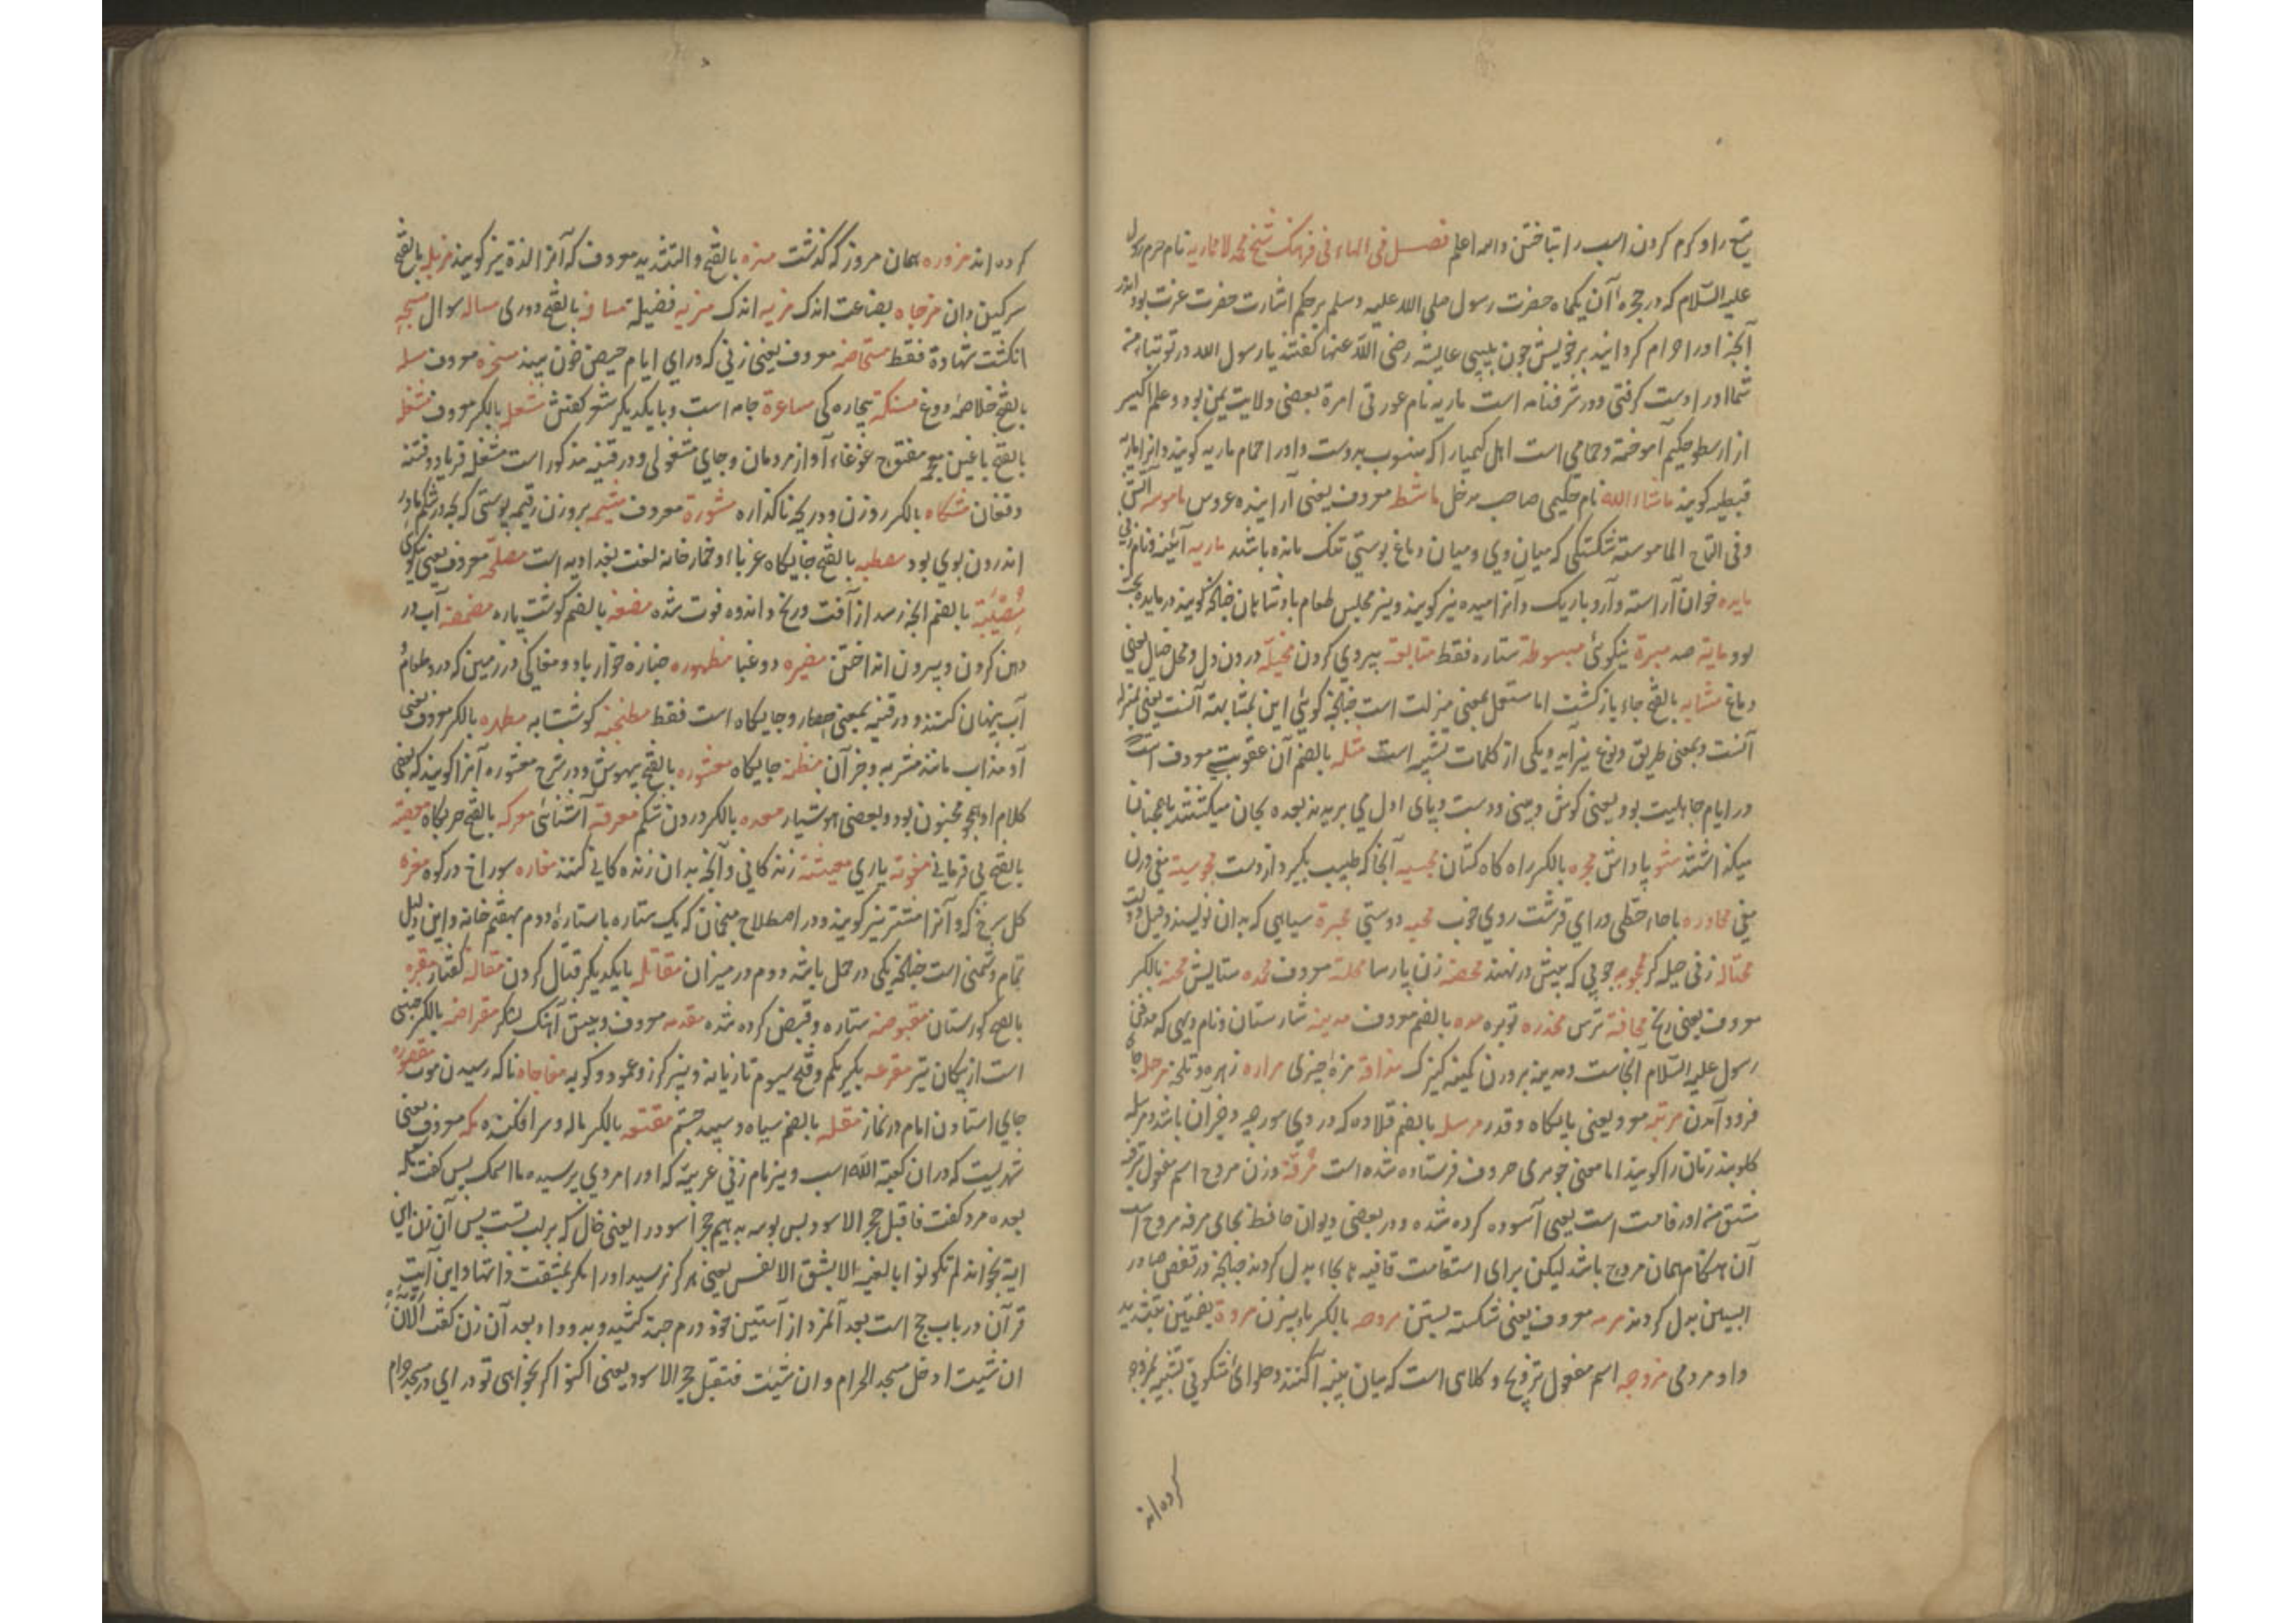 تیغ را و کرم کردن اسب را بتاختن والله اعلم فصل فی الهاء فی فرهنک شیخ محمد لاد ماریه نام حرم رسول
علیه السلام که در حجرهٔ آن یکماه حضرت رسول صلی الله علیه وسلم بر حکم اشارت حضرت عزت بود اندر
آنچه او را حرام کردانید بر خویش چون بیبی عایشه رضی الله عنها کفتند یا رسول الله در نوبتها منه
شما او را دست کرفتی و در شرفنامه است ماریه نام عورتی امرة بعضی ولایت یمن بود و علم اکسیر
از ارسطو حکیم آموخته و حمامی است اهل کیمیا را که منسوب بدوست و او را حمام ماریه کویند و انرا ماریه
قبطیه کویند ماشاء الله نام حکیمی صاحب مدخل ماشطه معروف یعنی آراینده عروس ماموسه آتش
وفی التاج الماموسة شکستکی که میان وی و میان دماغ پوستی تنک مانده باشد ماریه آئینه و نام بیبی
مایده خوان آراسته و آرد باریک و آنرا میده نیز کویند و نیز مجلس طعام بادشاهان چنانکه کویند در مایده بحث
بود مایه صد مبرة نیکوئی مبسوطه ستاره فقط متابعة پیروی کردن مخیله درون دل و محل خیال یعنی
دماغ مثابه بالفتح جاء بازکشت اما مستعمل بمعنی منزلت است چنانچه کوئی این بمثابه آنست یعنی بمنزله
آنست و بمعنی طریق و نوع نیز آید و یکی از کلمات تشبیه است مثله بالضم آن عقوبت معروف است
در ایام جاهلیت بود یعنی کوش و بینی و دست و پای اول می بریدند بعده بجان میکشتند یا همچنان
میکذاشتند مثوبه پاداش مجره بالکسر راه کاه کشان مجسه آنجا که طبیب بکیرد از دست مجوسیه مغ و زن
مغی محاوره باحاء حطی ورای قرشت روی خوب محبه دوستی محبرة سیاهی که بدان نویسند و قیل دوات
محتاله زنی حیله کر محجوبه چوبی که پیش در نهند محصنه زن پارسا محله معروف محمده ستایش محنه بالکسر
معروف یعنی رنج مخافة ترس مخدره توبره مده بالضم معروف مدینه شارستان و نام دیهی که مدفن
رسول علیه السلام آنجاست و مدینه بر وزن کمینه کنیزک مذاقة مزهٔ چیزی مراره زهره و تلخه مرحله جای
فرود آمدن مرتبه معروف یعنی پایکاه و قدر مرسله بالضم قلاده که در وی سورچه و جز آن باشد و مرسله
کلوبند زنان را کویند اما معنی جوهری حروف فرستاده شده است مرفه وزن مروح اسم مفعول ترفه
مشتق منه او رفاهت است یعنی آسوده کرده شده و در بعضی دیوان حافظ بجای مرفه مروح است
آن هنکام همان مروح باشد لیکن برای استقامت قافیه ها بحاء بدل کردند چنانچه در قفص صاد را
ابسین بدل کردند مرمه معروف یعنی شکسته بستن مروحه بالکسر بادبیزن مروة بضمتین بتشدید
واو مردمی مزوجه اسم مفعول تزویج و کلاهی است که میان پنبه آکنند و حلوای شکوفی تشبیه بمزوجه
کرده اند
کرده اند مزوره همان مزور که کذشت مزه بالفتح والتشدید معروف که آنرا لذة نیز کویند مزبله بالفتح
سرکین دان مزجاه بضاعت اندک مزیه اندک مزیه فضیلة مسافه بالفتح دوری مساله سوال مسبحه
انکشت شهادة فقط مستحاضه معروف یعنی زنی که ورای ایام حیض خون بیند مسخره معروف مسله
بالفتح خلاصهٔ دوغ مسکنة بیچاره کی مساعرة جامه است و با یکدیکر شعر کفتن مشعله بالکسر معروف مشغله
بالفتح باغین معجمه مفتوح غوغاء آواز مردمان و جای مشغولی و در قنیه مذکور است مشغله فریاد و فتنه
و فغان مشکاه بالکسر روزن و دریچه ناکذاره مشورة معروف مشیمه بر وزن رقیمه پوستی که بچه در شکم مادر
اندرون بوی بود مصطبه بالفتح جایکاه غرباء و خمارخانه لغت بغدادیه است مصلحة معروف یعنی نیکوئی
مصیبة بالضم آنچه رسد از آفت و رنج و اندوه فوت شده مضغه بالضم کوشت پاره مضمضه آب در
دهن کردن و بیرون انداختن مضیره دوغبا مطهوره جنازه خوار باد و مغاکی در زمین که در و طعام و
آب پنهان کنند و در قنیه بمعنی حصار و جایکاه است فقط مطنجنه کوشتابه مطهره بالکسر معروف یعنی
آوند آب مانند مشربه و جز آن مظنه جایکاه معتوه بالفتح بیهوش و در شرح معتوه آنرا کویند که بعضی
کلام او همچو مجنون بود و بعضی هوشیار معده بالکسر درون شکم معرفة آشنائی معرکه بالفتح حربکاه معصیة
بالفتح بی فرمانی معونة یاری معیشة زندکانی و آنچه بدان زنده کانی کنند مغاره سوراخ در کوه مغره
کل سرخ کرد آنرا مشتر نیز کویند و در اصطلاح منجمان که یک ستاره با ستارهٔ دوم بهفتم خانه و این دلیل
تمام دشمنی است چنانکه یکی در حمل باشد و دوم در میزان مقاتله با یکدیکر قتال کردن مقاله کفتار مقبره
بالفتح کورستان مقبوضه ستاره و قبض کرده شده مقدمه معروف و پیش آهنک لشکر مقراضه بالکسر جنسی
است از پیکان تیر مقرعه بکسر یکم و فتح سیوم تازیانه و نیز کرز و عمود و کوبه مفاجاه ناکه رسیدن موت مقصوره
جای استادن امام در نماز مقله بالضم سیاه و سپید چشم مقنعه بالکسر ماله و سرافکنده مکه معروف یعنی
شهریست که در ان کعبة الله است و نیز نام زنی عربیه که او را مردی پرسیده ما اسمک پس کفت مکه
بعده مرد کفت فاقبل حجر الاسود پس بوسه بدهیم حجر اسود را یعنی خال که بر لبتست پس آن زن این
ایة بخواند لم تکونوا بالغیه الا بشق الانفس یعنی هرکز نرسید او را مکر بمشقت ذاتها و این آیت
قرآن در باب حج است بعد آنمرد از آستین خود درم چند کشید و بدو داد بعد آن زن کفت الآن
ان شئت ادخل مسجد الحرام و ان شئت فتقبل حجر الاسود یعنی اکنون اکر بخواهی تو در ای در مسجد حرام